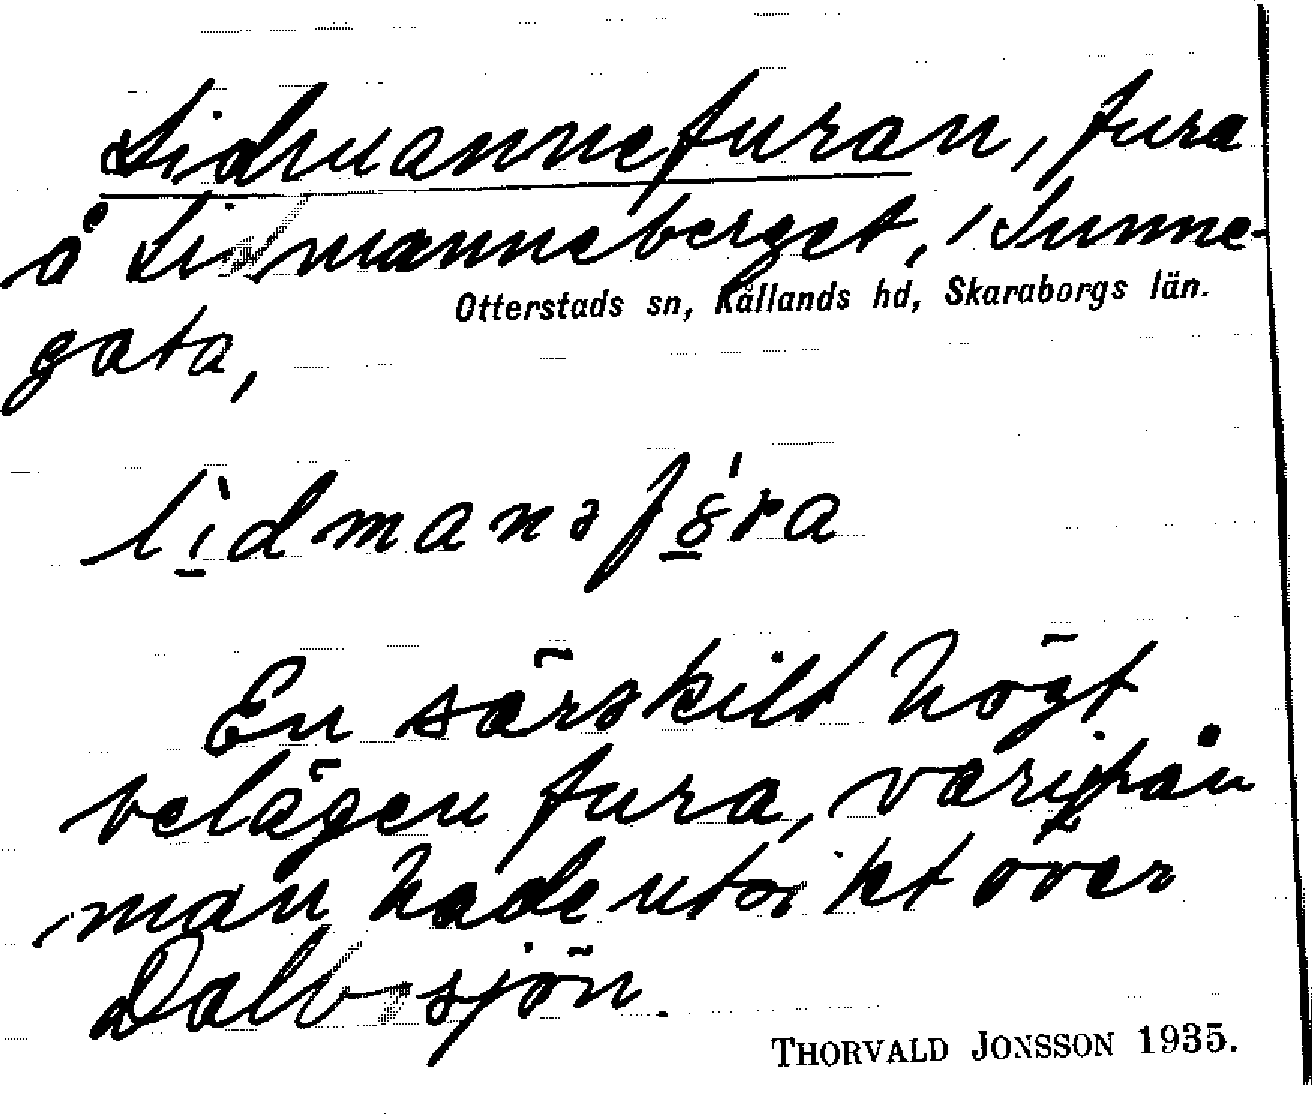 Lidmannefuran, fura
å Lidmanneberget, i Sunne-
Otterstads sn, Kållands hd, Skaraborgs län.
gata,
lìdmanəfó̱ra
En särskilt högt
belägen fura, varifrån
man hade utsikt över
Dalbosjön.
THORVALD JONSSON 1935.